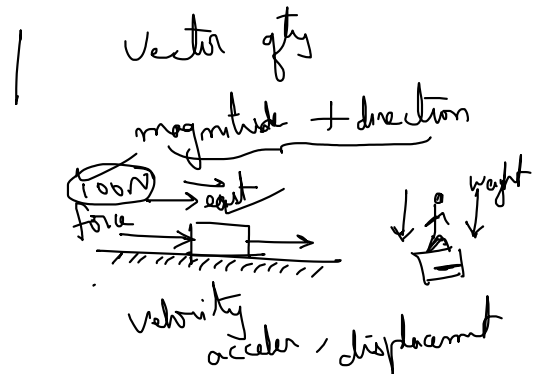 Vector qty
magnitude + direction
100N east
weight
force
velocity
acceler, displacement